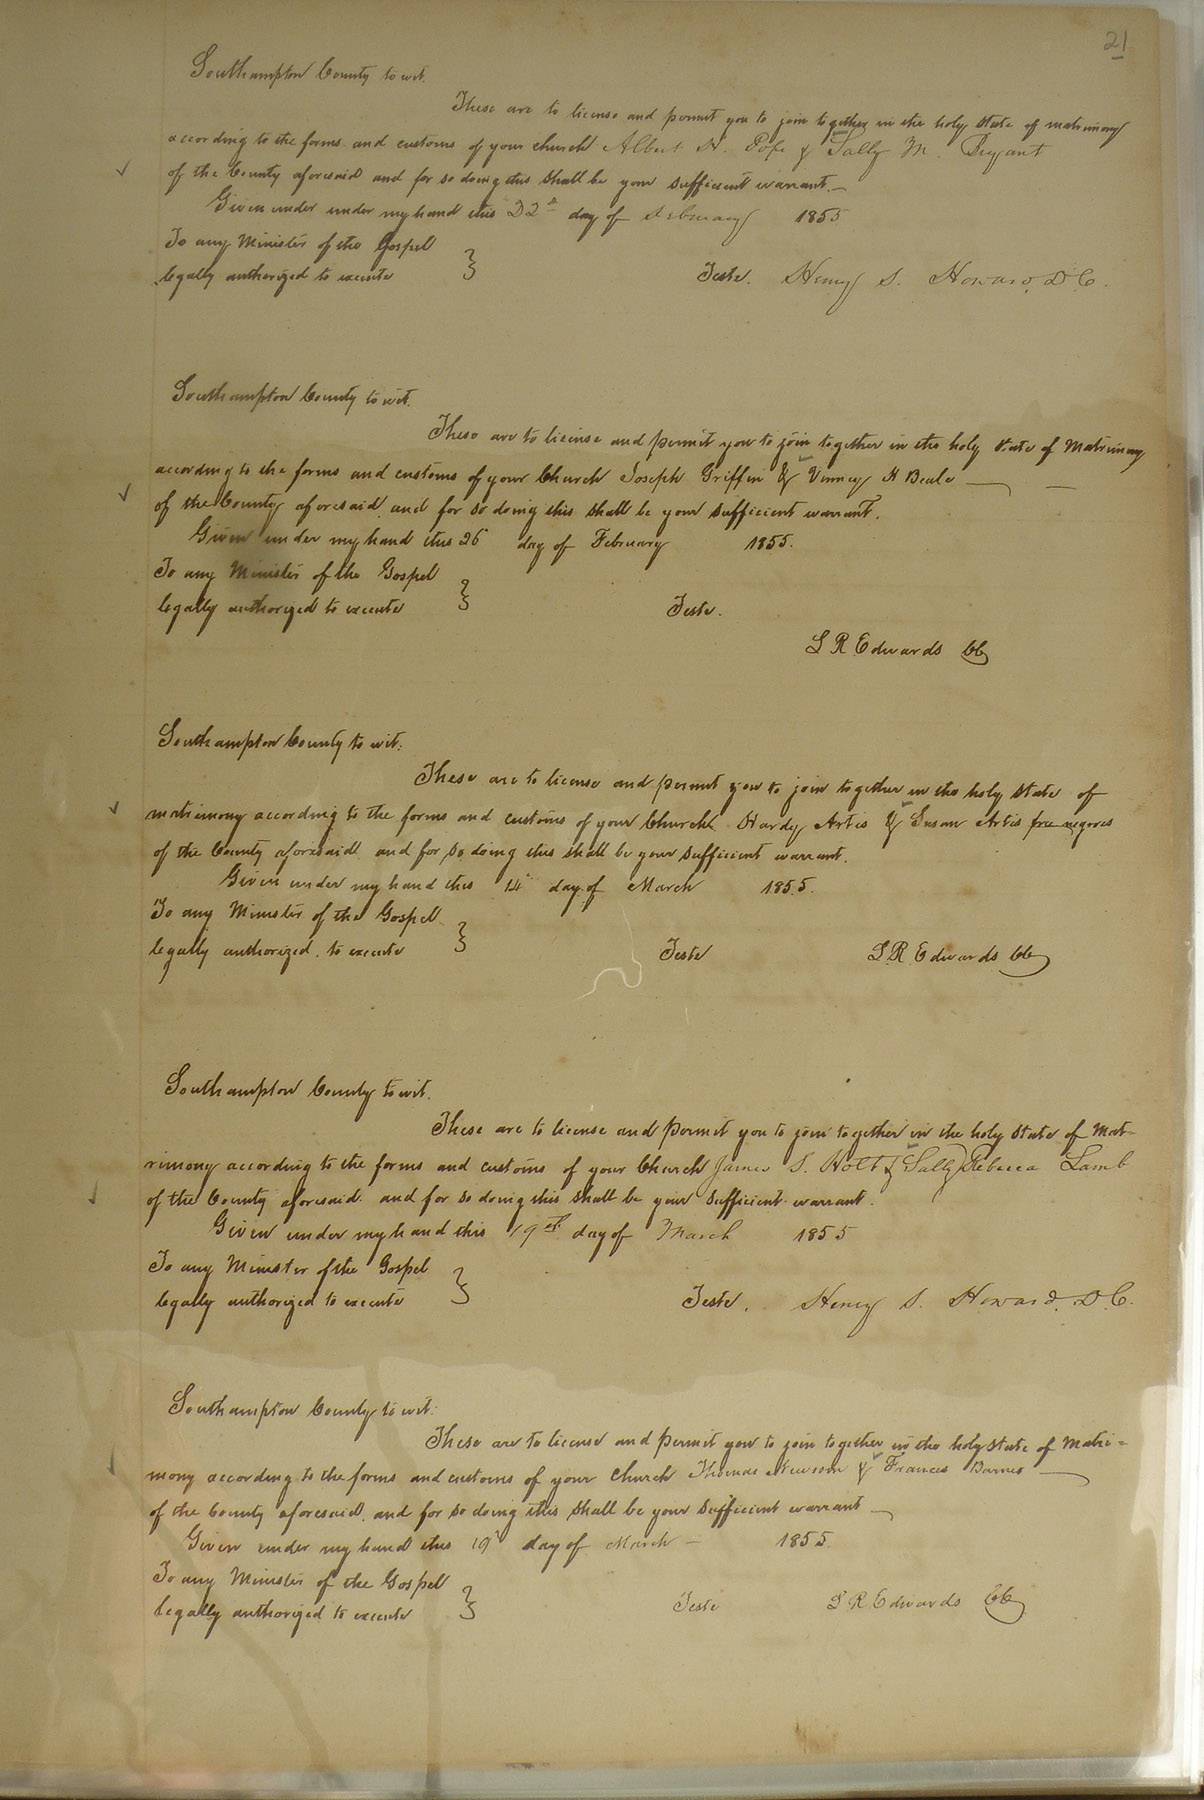 21
Southampton County to wit.
These are to license and permit you to join together in the holy state of matrimony
according to the forms and customs of your church Albert H. Pope & Sally M. Bryant
of the County aforesaid and for so doing this shall be your sufficient warrant.
Given under under my hand this 22d day of February 1855
To any Minister of the Gospel
legally authorized to execute } Teste. Henry S. Howard, D.C.
Southampton County to wit.
These are to license and permit you to join together in the holy state of Matrimony
according to the forms and customs of your Church Joseph Griffin & Vinney H Beale
of the County aforesaid and for so doing this shall be your sufficient warrant.
Given under my hand this 26 day of February 1855.
To any Minister of the Gospel
legally authorized to execute } Teste.
L R Edwards CC
Southampton County to wit:
These are to license and permit you to join together in the holy state of
matrimony according to the forms and customs of your Church Hardy Artis & Susan Artis free negroes
of the County aforesaid and for so doing this shall be your sufficient warrant.
Given under my hand this 14 day of March 1855.
To any Minister of the Gospel
legally authorized to execute } Teste L R Edwards CC
Southampton County to wit.
These are to license and permit you to join together in the holy state of Mat-
rimony according to the forms and customs of your Church James S. Holt & Sally Rebecca Lamb
of the County aforesaid and for so doing this shall be your sufficient warrant.
Given under my hand this 19th day of March 1855
To any Minister of the Gospel
legally authorized to execute } Teste. Henry S. Howard, D.C.
Southampton County to wit:
These are to license and permit you to join together in the holy state of Matri=
mony according to the forms and customs of your church Thomas Newsom & Frances Barnes
of the County aforesaid and for so doing this shall be your sufficient warrant
Given under my hand this 19 day of March 1855.
To any Minister of the Gospel
legally authorized to execute } Teste L R Edwards CC